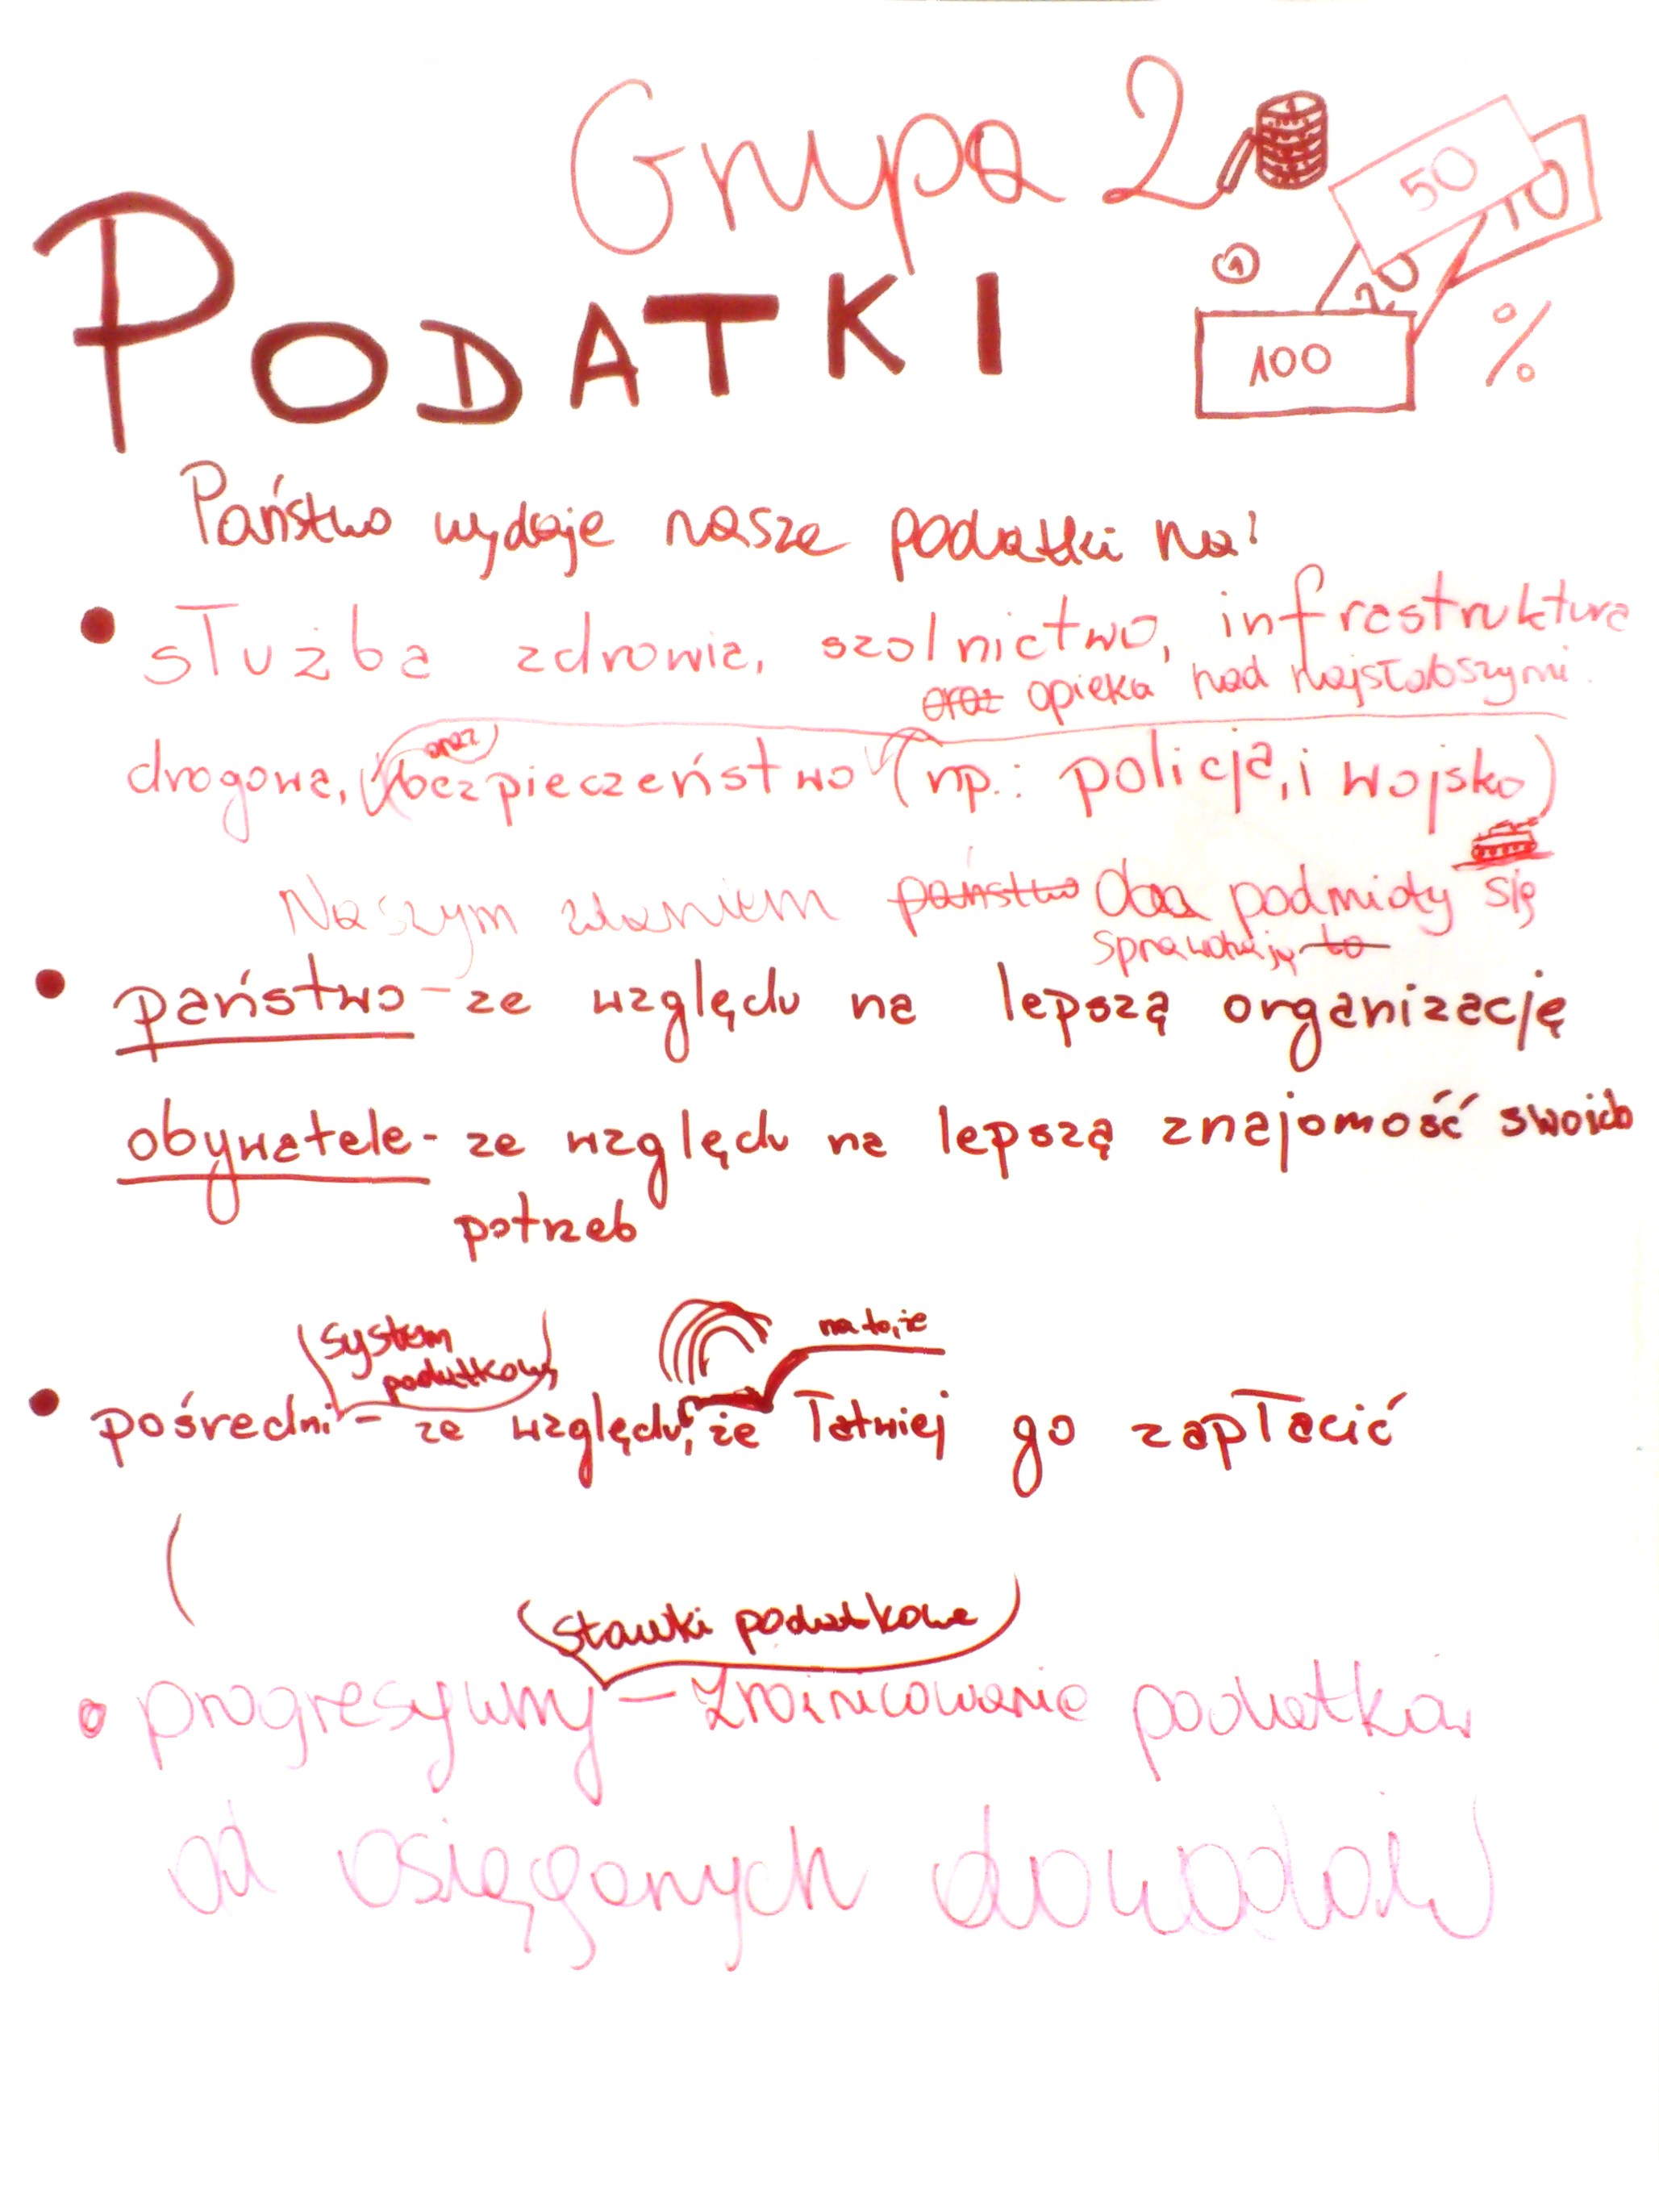 Grupa 2
PODATKI
1
50
10
20
100
%
Państwo wydaje nasze podatki na:
• służba zdrowia, szolnictwo, infrastruktura
oraz opieka nad najsłabszymi.
drogowa, oraz bezpieczeństwo (np.: policja, i wojsko)
Naszym zdaniem państwo oba podmioty się
sprawdzają to
• państwo - ze względu na lepszą organizację
obywatele - ze względu na lepszą znajomość swoich
potrzeb
system
podatkowy
na to, że
• pośredni - ze względu, że łatwiej go zapłacić
(
stawki podatkowe
• progresywny - zróżnicowanie podatków
od osięganych dowodów